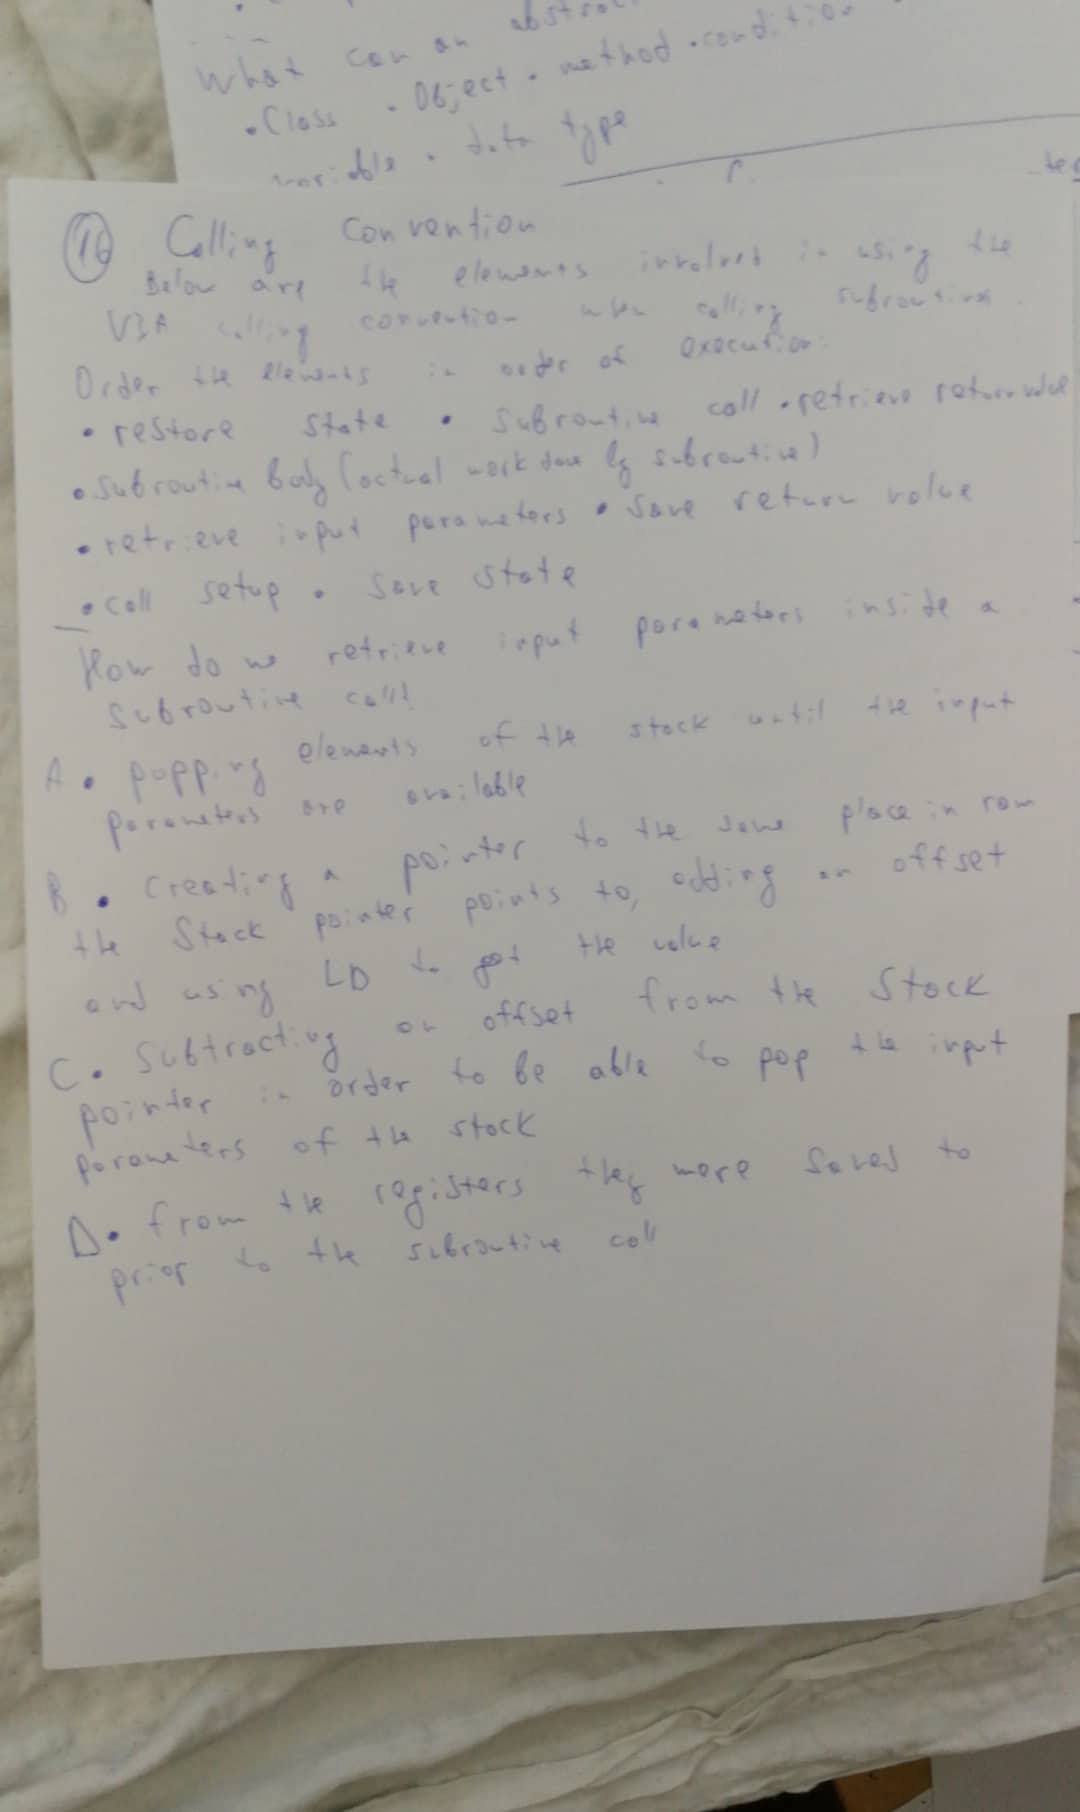 abstrac
What can an
• Class • Object • method • condition
variable • data type
16 Calling Convention
Below are the elements involved in using the
VIA calling convention when calling subroutines.
Order the elements in order of execution:
• restore state • subroutine call • retrieve return value
• subroutine body (actual work done by subroutine)
• retrieve input parameters • save return value
• call setup • save state
How do we retrieve input parameters inside a
subroutine call?
A • popping elements of the stack until the input
parameters are available
B • Creating a pointer to the same place in ram
the Stack pointer points to, adding an offset
and using LD to get the value
C • Subtracting an offset from the Stack
pointer in order to be able to pop the input
parameters of the stock
D • from the registers they were saved to
prior to the subroutine call